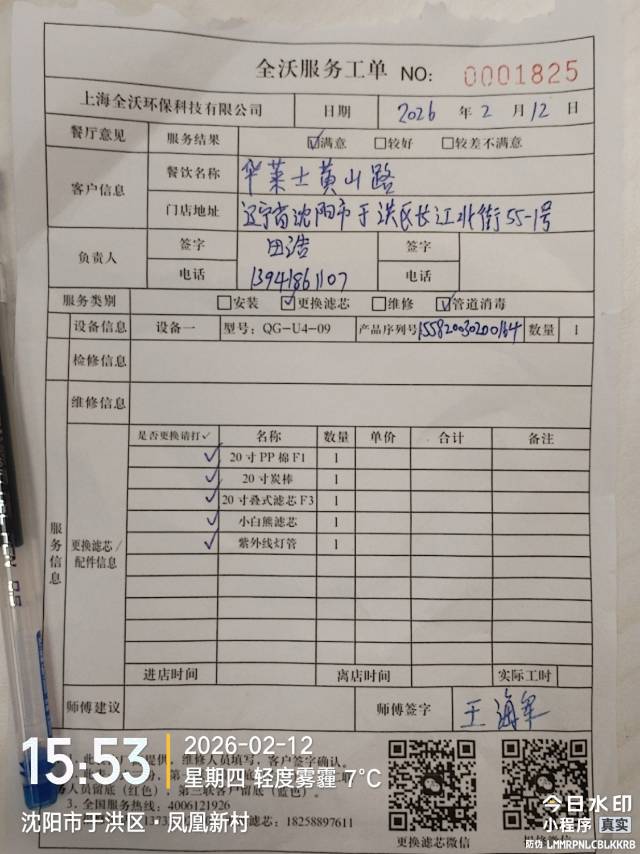 全沃服务工单 NO: 0001825
上海全沃环保科技有限公司 日期 2026 年 2 月 12 日
餐厅意见 服务结果 ☑满意 ☐较好 ☐较差不满意
客户信息 餐饮名称 华莱士黄山路
门店地址 辽宁省沈阳市于洪区长江北街55-1号
负责人 签字 田浩 签字
电话 13941861107 电话
服务类别 ☐安装 ☑更换滤芯 ☐维修 ☑管道消毒
设备信息 设备一 型号: QG-U4-09 产品序列号155820030200164 数量 1
检修信息
维修信息
服务信息 更换滤芯/配件信息
是否更换请打✓ 名称 数量 单价 合计 备注
✓ 20寸PP棉F1 1
✓ 20寸炭棒 1
✓ 20寸叠式滤芯F3 1
✓ 小白熊滤芯 1
✓ 紫外线灯管 1
进店时间 离店时间 实际工时
师傅建议 师傅签字 王海军
提供, 维修人员填写, 客户签字确认。
务人员留底(红色), 第三联客户留底(蓝色)。
3. 全国服务热线: 4006121926
滤芯: 18258897611
更换滤芯微信
15:53
2026-02-12
星期四 轻度雾霾 7℃
沈阳市于洪区·凤凰新村
今日水印
小程序 真实
防伪 LMMRPNLCBLKKRB